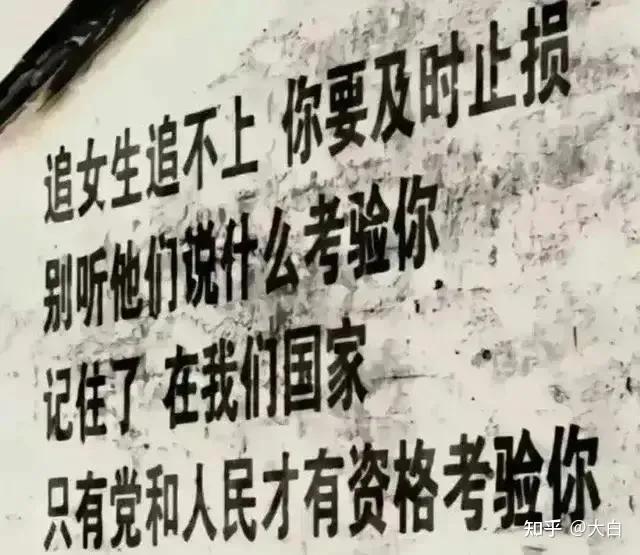 追女生追不上 你要及时止损
别听他们说什么考验你
记住了 在我们国家
只有党和人民才有资格考验你
知乎 @大白